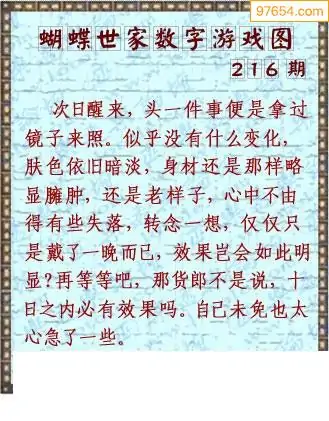 97654.com
蝴蝶世家数字游戏图
216期
次日醒来，头一件事便是拿过
镜子来照。似乎没有什么变化，
肤色依旧暗淡，身材还是那样略
显臃肿，还是老样子，心中不由
得有些失落，转念一想，仅仅只
是戴了一晚而已，效果岂会如此明
显?再等等吧，那货郎不是说，十
日之内必有效果吗。自己未免也太
心急了一些。